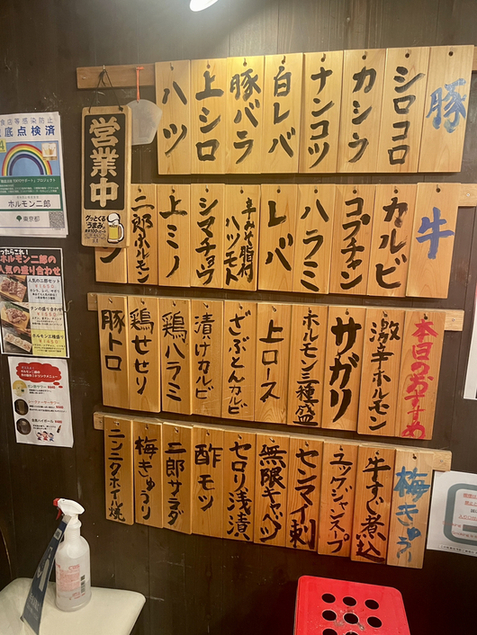 豚
シロコロ
カシラ
ナンコツ
白レバ
豚バラ
上シロ
ハツ
営業中
グッとくる
うまみ。
牛
カルビ
コプチャン
ハラミ
レバ
辛みそ脂付ハツモト
シマチョウ
上ミノ
二郎ホルモン
本日のおすすめ
激辛ホルモン
サガリ
ホルモン三種盛
上ロース
ざぶとんカルビ
漬けカルビ
鶏ハラミ
鶏せせり
豚トロ
梅きゅう
牛すじ煮込
ユッケジャンスープ
センマイ刺
無限キャベツ
セロリ浅漬
酢モツ
二郎サラダ
梅きゅうり
ニンニクホイル焼
底点検済
ホルモン二郎
東京都
ホルモン二郎の
人気の盛り合わせ